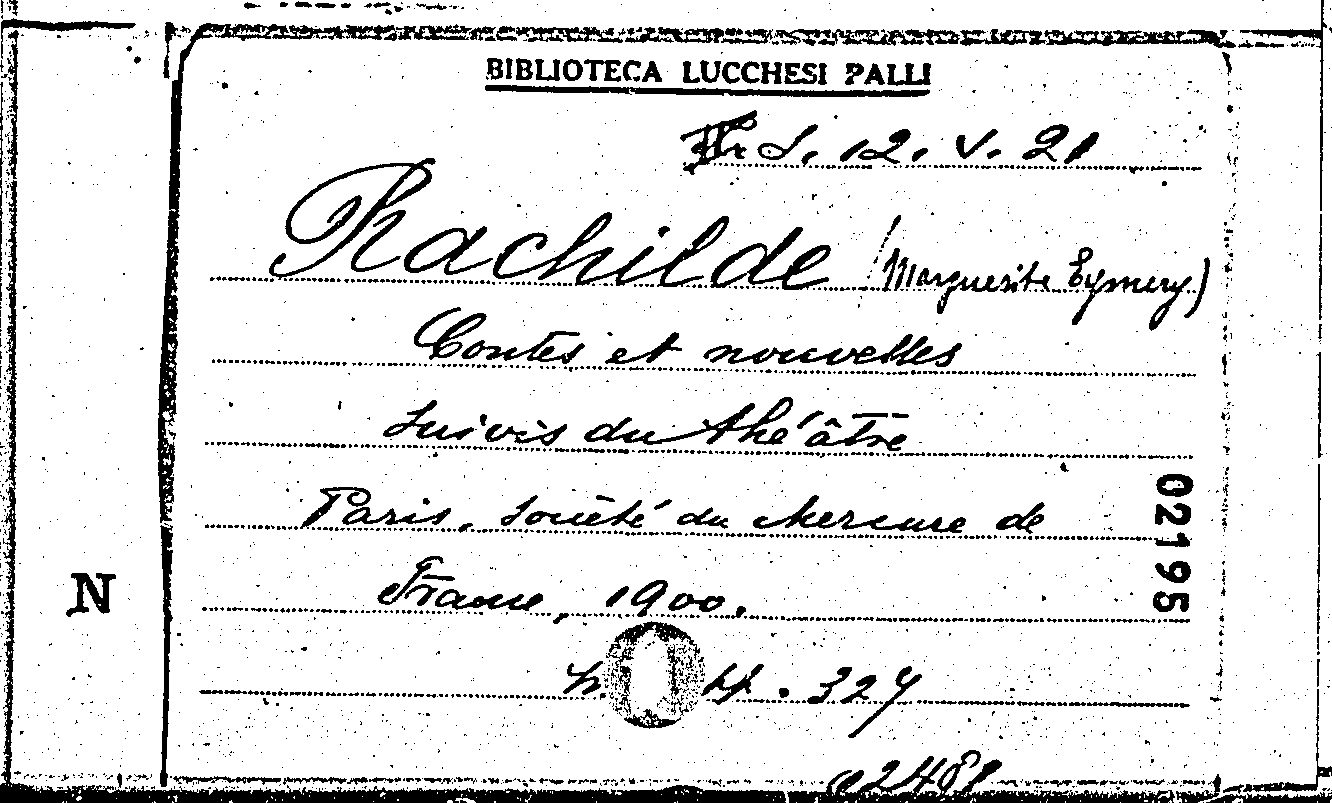 BIBLIOTECA LUCCHESI PALLI
S. 12. V. 21
Rachilde (Marguerite Eymery)
Contes et nouvelles
suivis du théâtre
Paris, Société du Mercure de
France, 1900.
02195
N
4. 327